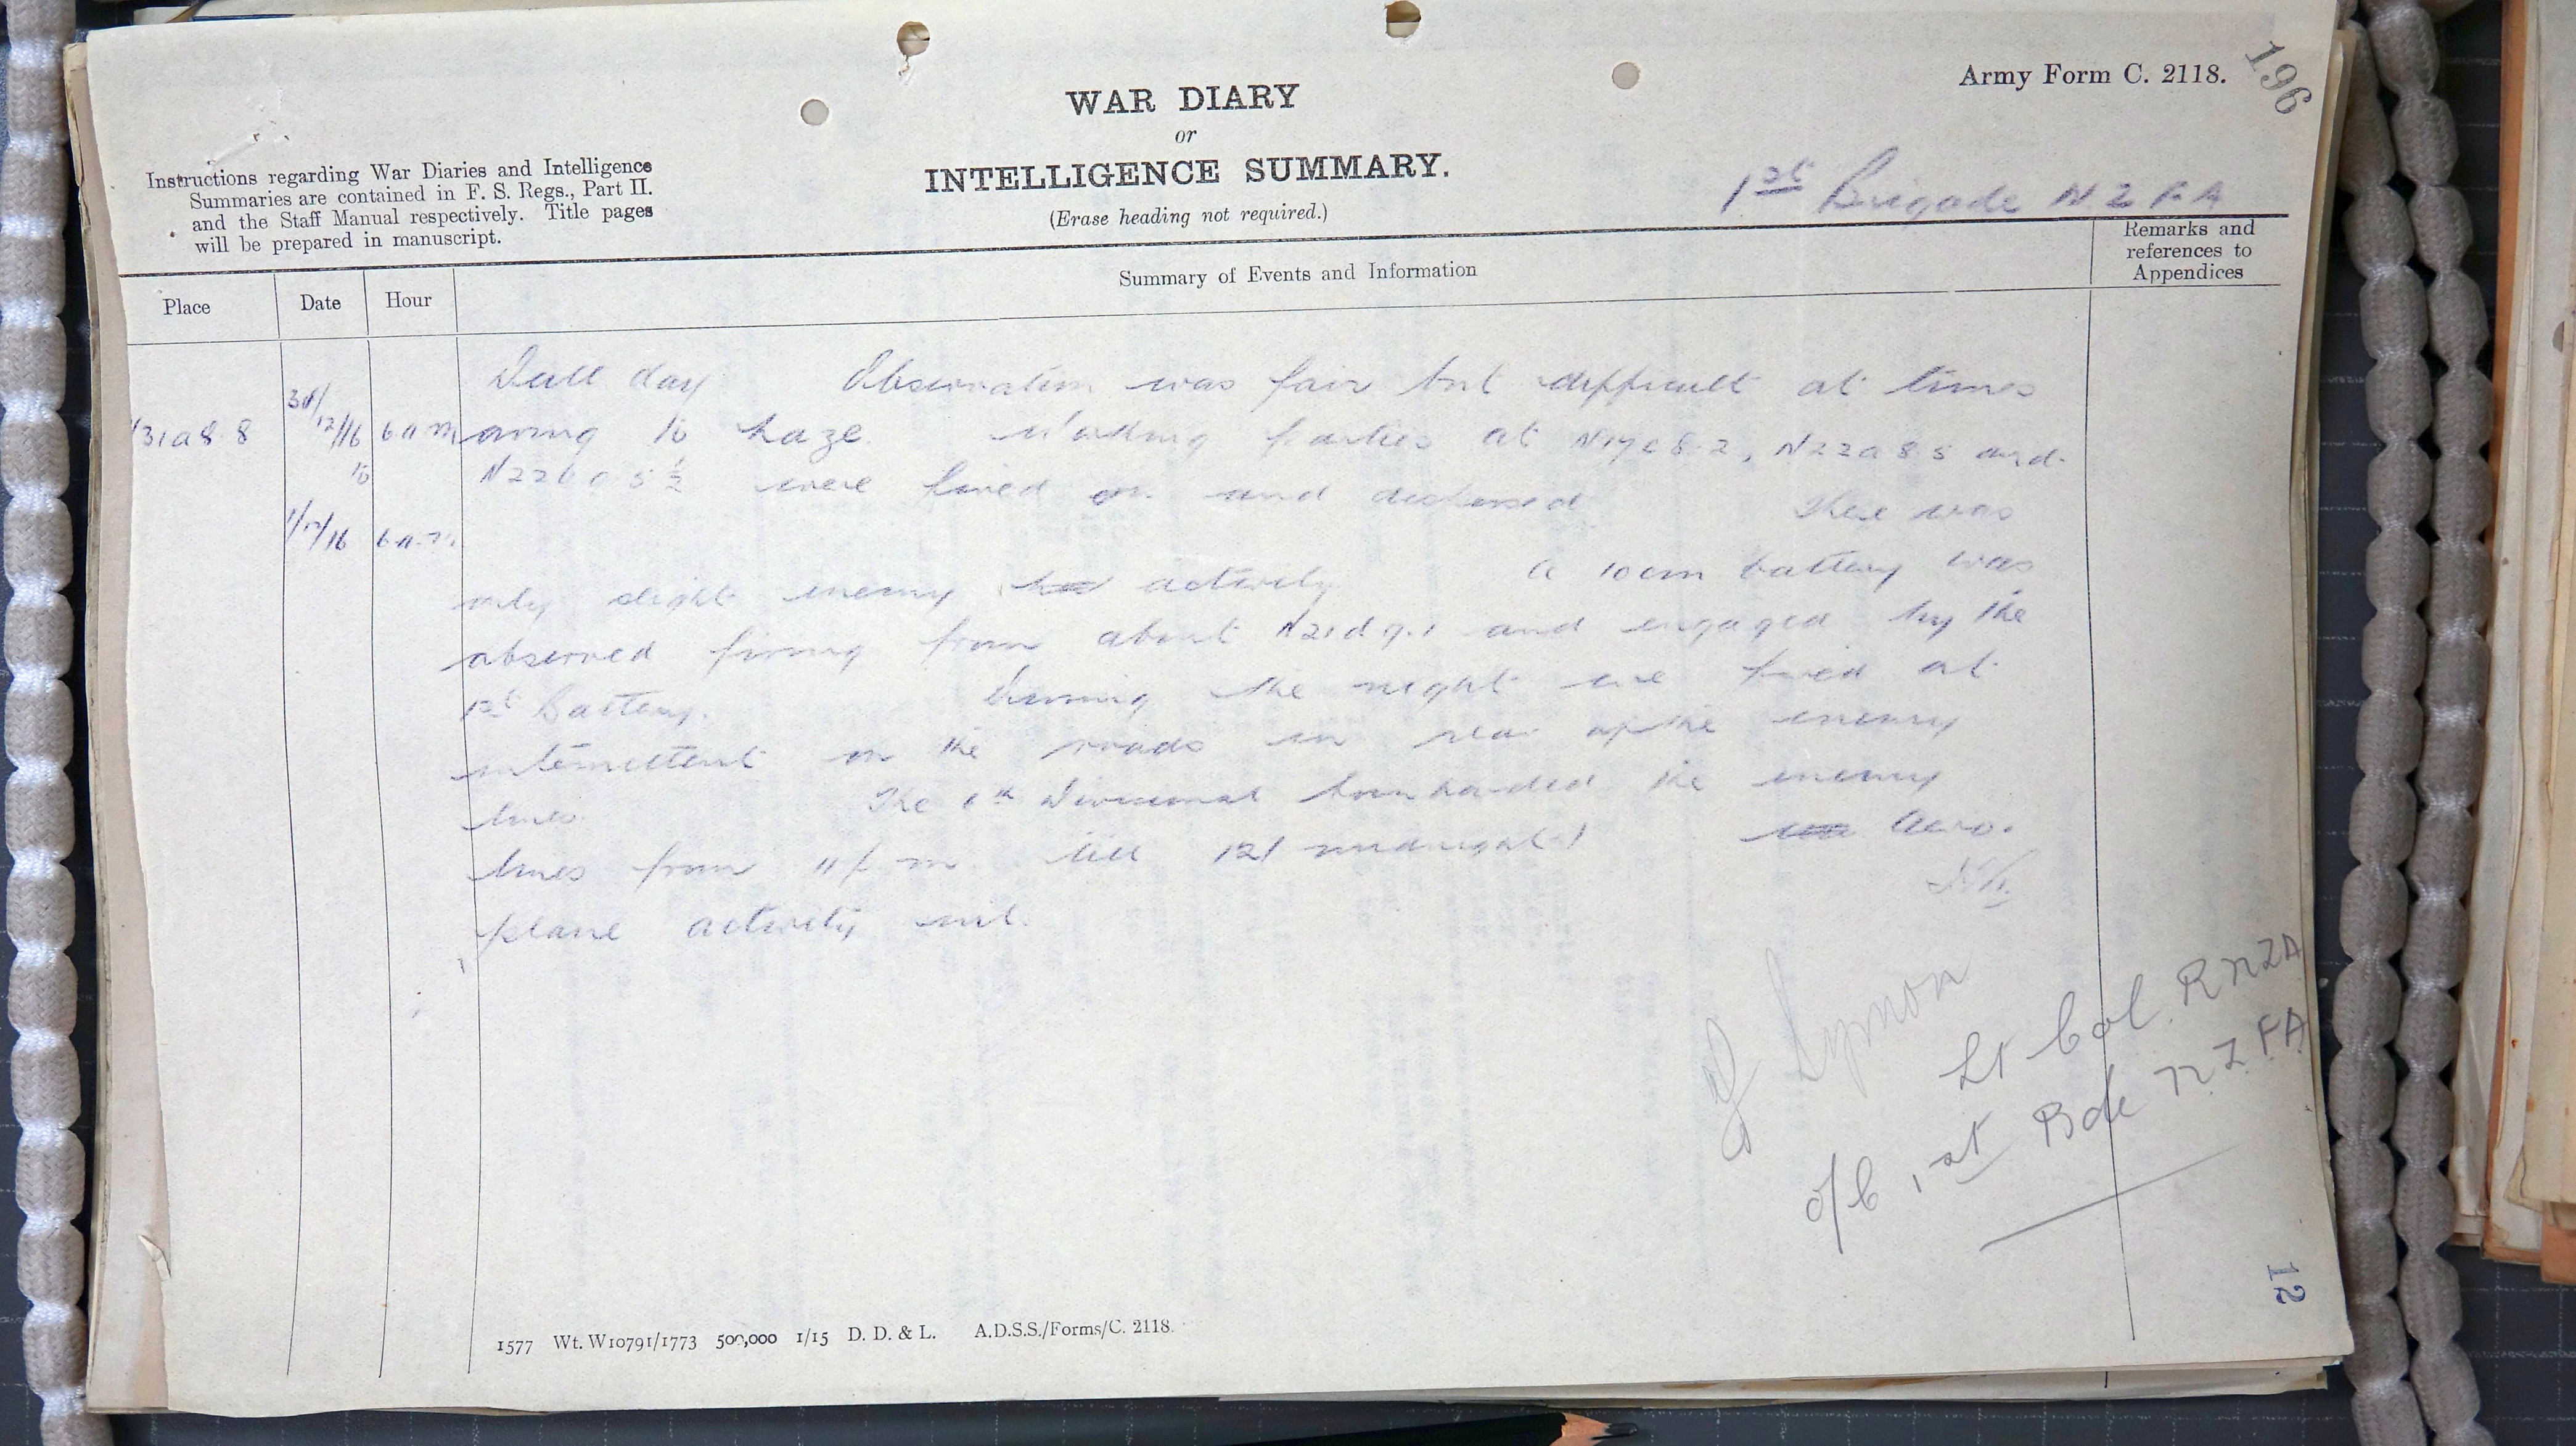 196
Army Form C. 2118.
WAR DIARY
or
INTELLIGENCE SUMMARY.
(Erase heading not required.)
Instructions regarding War Diaries and Intelligence
Summaries are contained in F. S. Regs., Part II.
and the Staff Manual respectively. Title pages
will be prepared in manuscript.
1st Brigade N Z F A
Place
Date
Hour
Summary of Events and Information
Remarks and
references to
Appendices
Dull day Observation was fair but difficult at times
31a88 12/16 6 a m owing to haze. Working parties at N17c8.2, N22a8.5 and
to N22b 0 5½ were fired on and dispersed There was
1/1/16 6 a.m.
only slight enemy activity A 10cm battery was
observed firing from about N21d9.1 and engaged by the
1st Battery. During the night we fired at
intermittent on the roads in rear of the enemy
lines. The Divisional bombarded the enemy
lines from 11 p m till 12 midnight Aero.
plane activity nil.
J Symon
Lt Col. RNZA
o/c 1st Bde NZFA
12
1577 Wt. W10791/1773 500,000 1/15 D. D. & L. A.D.S.S./Forms/C. 2118.